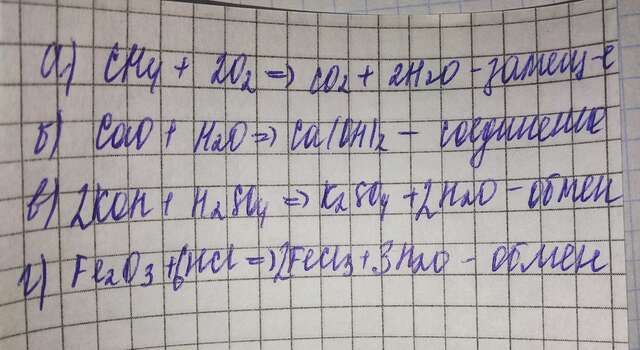 а) CH4 + 2O2 => CO2 + 2H2O - замещ-е
б) CaO + H2O => Ca(OH)2 - соединение
в) 2KOH + H2SO4 => K2SO4 + 2H2O - обмен
г) Fe2O3 + 6HCl => 2FeCl3 + 3H2O - обмен